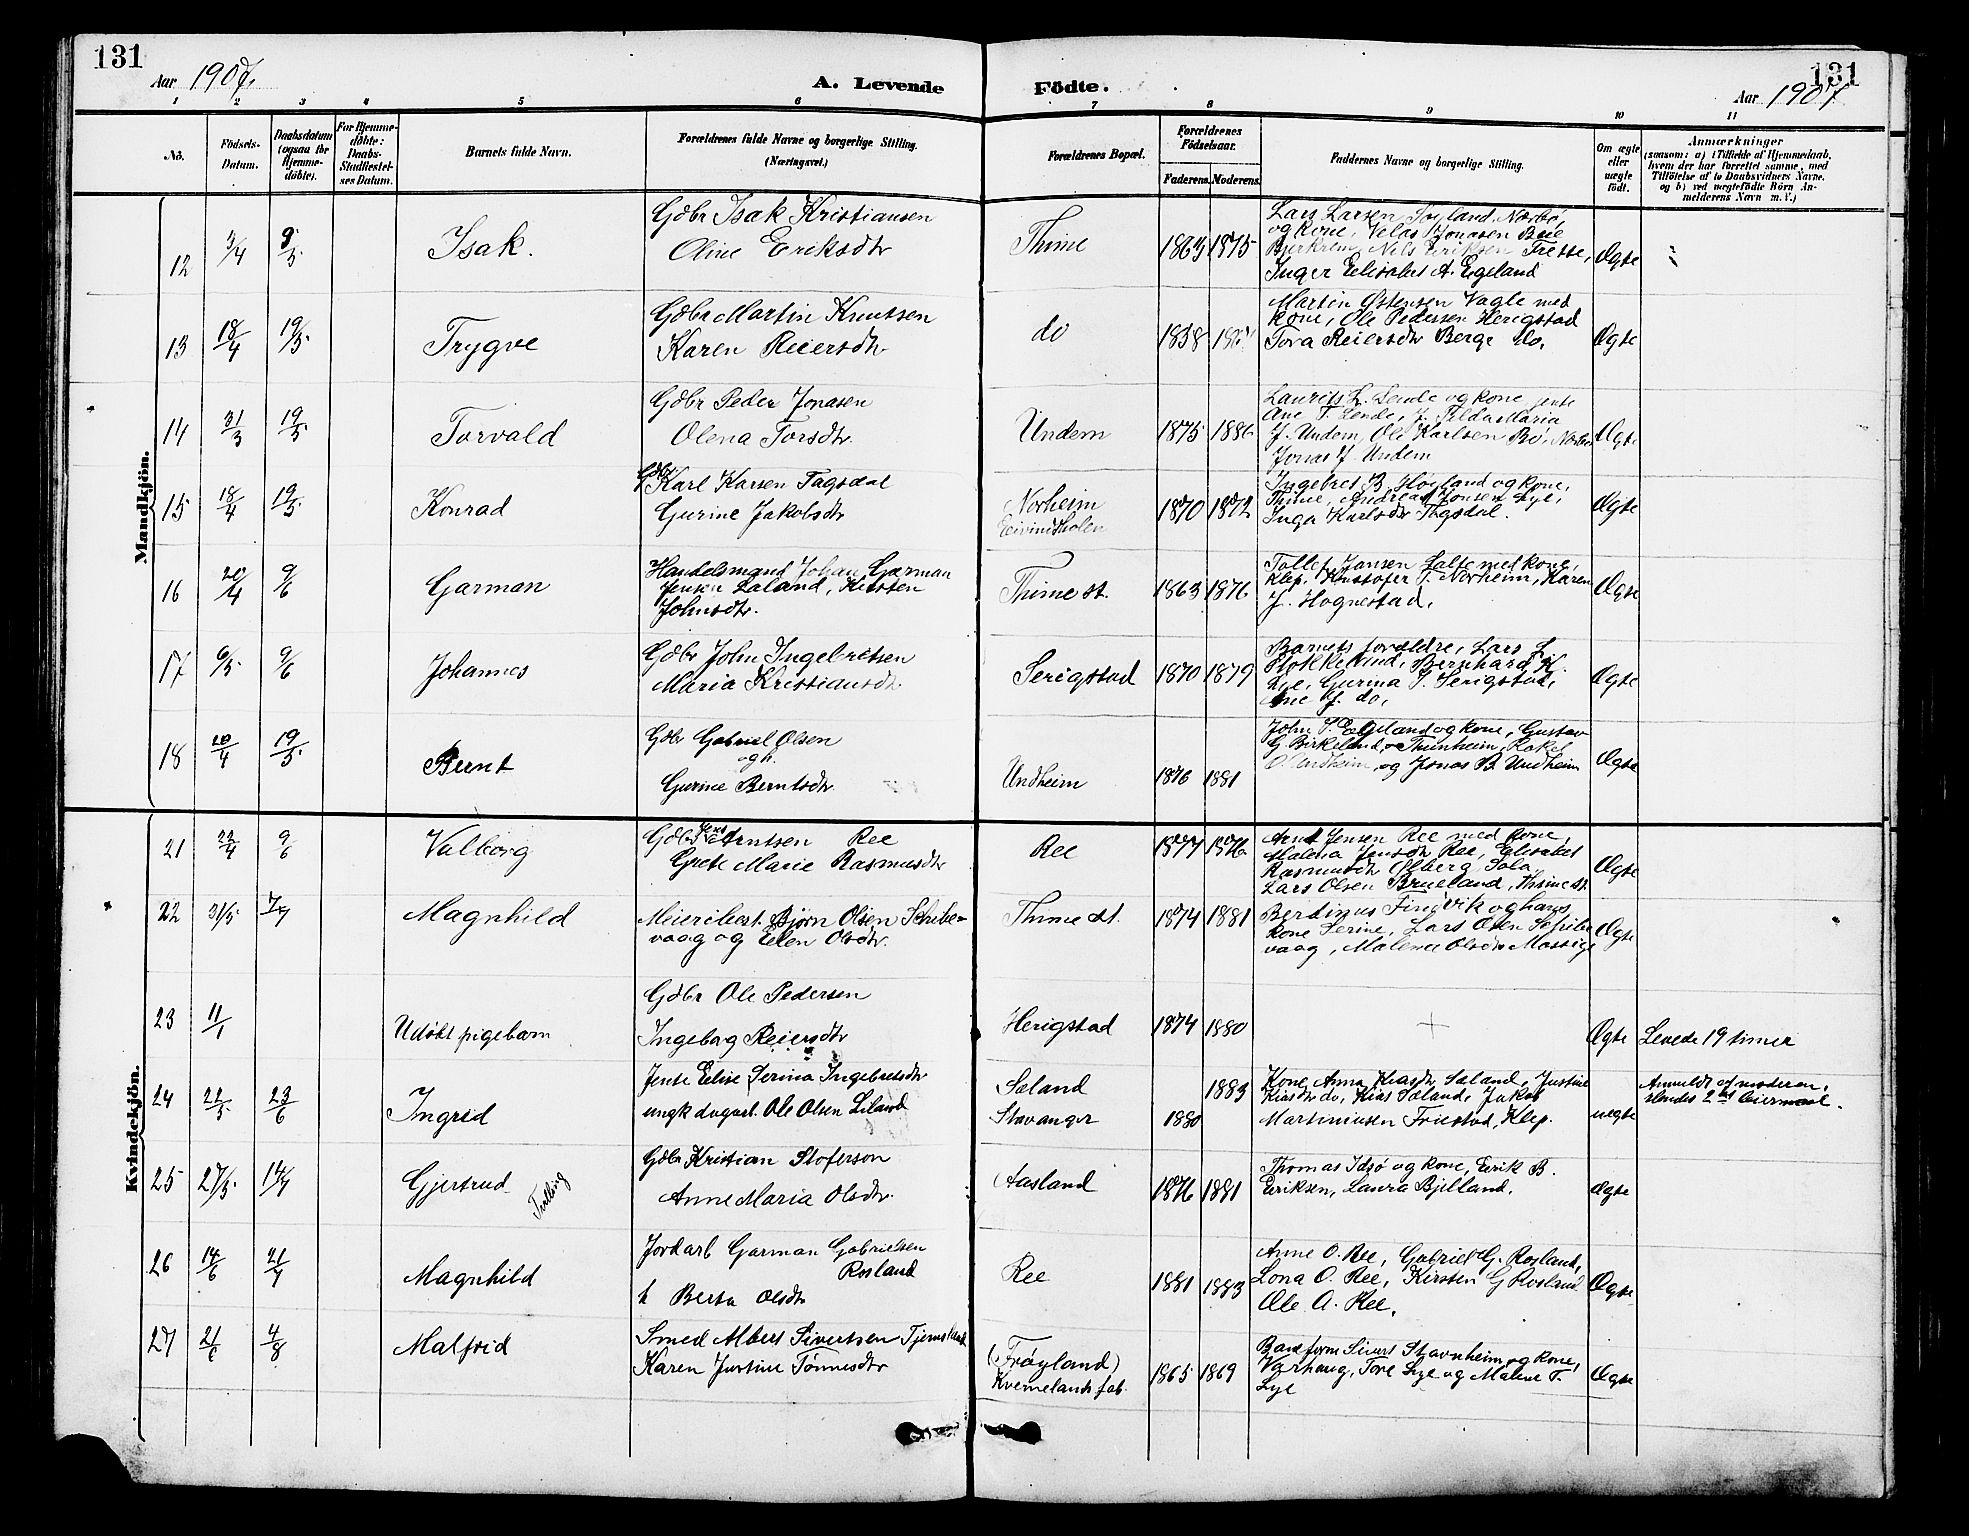 131
Aar 1907.
A. Levende
Födte.
131
Aar 1907
1 2 3 4 5 6 7 8 9 10 11
No.
Födsels-Datum.
Daabsdatum (ogsaa for Hjemme-døbte).
For Hjemme-døbte: Daabs-Stadfæstel-ses Datum.
Barnets fulde Navn.
Forældrenes fulde Navne og borgerlige Stilling. (Næringsvei.)
Forældrenes Bopæl.
Forældrenes Födselsaar.
Faderens. Moderens.
Faddernes Navne og borgerlige Stilling.
Om ægte eller uægte født.
Anmærkninger
(saasom: a) i Tilfælde af Hjemmedaab, hvem der har forrettet samme, med Tilföielse af to Daabsvidners Navne, og b) ved uægtefödte Börn An-melderens Navn m. V.)
Mandkjön.
12 3/4 9/5 Isak.
Gdbr Isak Kristiansen
Oline Eriksdtr
Thime 1863 1875
Lars Larsen Nærbø,
og kone, Jonasen Bue
Bjerkrem, Nils Eriksen Tresse,
Inger Elisabet A. Egeland
Ægte
13 18/4 19/5. Trygve
Gdbr Martin Knutsen
Karen Reiersdtr.
do 1858
Martin Østensen Vagle med
kone, Ole Pedersen Herigstad
Tora Reiersdtr Berge do.
Ægte
14 31/3 19/5. Torvald
Gdbr Peder Jonasen
Olena Torsdtr.
Undem 1875 1886
Laurits L. Lende og kone, jente
Ane T. Lende, Maria
J. Undem, Ole Karlsen Bø, Nærbø
Jonas J. Undem
Ægte
15 18/4 19/5 Konrad
Gdbr Karl Karsen Tagsdal
Gurine Jakobsdtr
Norheim
Eivindsholen
1870 1872
Ingebret B. Høiland og kone,
Thime, Andreas Jonsen Lye,
Inga Karlsdtr Tagsdal.
Ægte
16 20/4 9/6 Garman
Handelsmand Johan Garman
Jensen Laland, Kirsten
Johnsdtr.
Thime st. 1863 1876
Tollef Hansen Salte med kone,
Klep, Kristofer T. Norheim, Karen
J. Hognestad.
Ægte
17 6/5. 9/6 Johannes
Gdbr John Ingebretsen
Maria Kristiansdtr
Serigstad 1870 1879
Barnets forældre, Lars L
Stokkelind, Bernhard K.
Lye, Gurina J. Serigstad,
Ane J. do,
Ægte
18 20/4 19/5. Bernt
Gdbr Gabriel Olsen
og h.
Gurine Berntsdtr.
Undheim 1876 1881
John P. Egeland og kone, Gustav
G. Birkeland, Thunheim, Rakel
O. Undheim, og Jonas B. Undheim
Ægte
Kvindekjön.
21 22/4 9/6 Valborg
Gdbr Jens Arntsen Ree
Grete Marie Rasmusdtr
Ree 1877 1876
Arnt Jensen Ree med kone,
Malena Jensdtr Ree, Elisabet
Rasmusdtr Sola
Lars Olsen Brueland, Thime st.
Ægte
22 31/5. 7/7 Magnhild
Meieribest. Bjørn Olsen Skribe-
vaag og Elen Olsdtr.
Thime st. 1874 1881
Berdinus Findvik og hans
kone Serine, Lars Olsen Skribe
vaag, Malene Olsdtr Mossige
Ægte
23 11/1 Udøbt pigebarn
Gdbr Ole Pedersen
Ingeborg Reiersdtr
Herigstad 1874 1880
+
Ægte Levede 19 timer
24 22/5. 23/6 Ingrid
Jente Elise Serina Ingebretsdtr
ungk dagarb. Ole Olsen Liland
Sæland 1883
Stavanger 1880
Kone Anna Kiasdtr Sæland, Justine
Kiasdtr do, Kias Sæland, Jakob
Martiniusen Friestad, Klep.
uægte
Anmeldt af moderen,
2det leiermaal.
25 27/5. 14/7 Gjertrud
Tvilling
Gdbr Kristian Stoferson
Anne Maria Olsdtr.
Aasland 1876 1881
Thomas Idsø og kone, Eirik B.
Eriksen, Laura Bjelland.
ægte
26 14/6 21/7 Magnhild
Jordarb Garman Gabrielsen
Rosland
h Berta Olsdtr
Ree 1881 1883
Anne O. Ree, Gabriel G. Rosland,
Lona O. Ree, Kirsten G Rosland
Ole A. Ree.
Ægte
27 21/6 4/8 Malfrid
Smed Albert Sivertsen Tjemsland
Karen Justine Tønnesdtr
(Frøyland)
Kvernelands fab.
1865 1869
Baneform Sivert Stavnheim og kone,
Varhaug, Tore Lye og Malene T.
Lye
Ægte